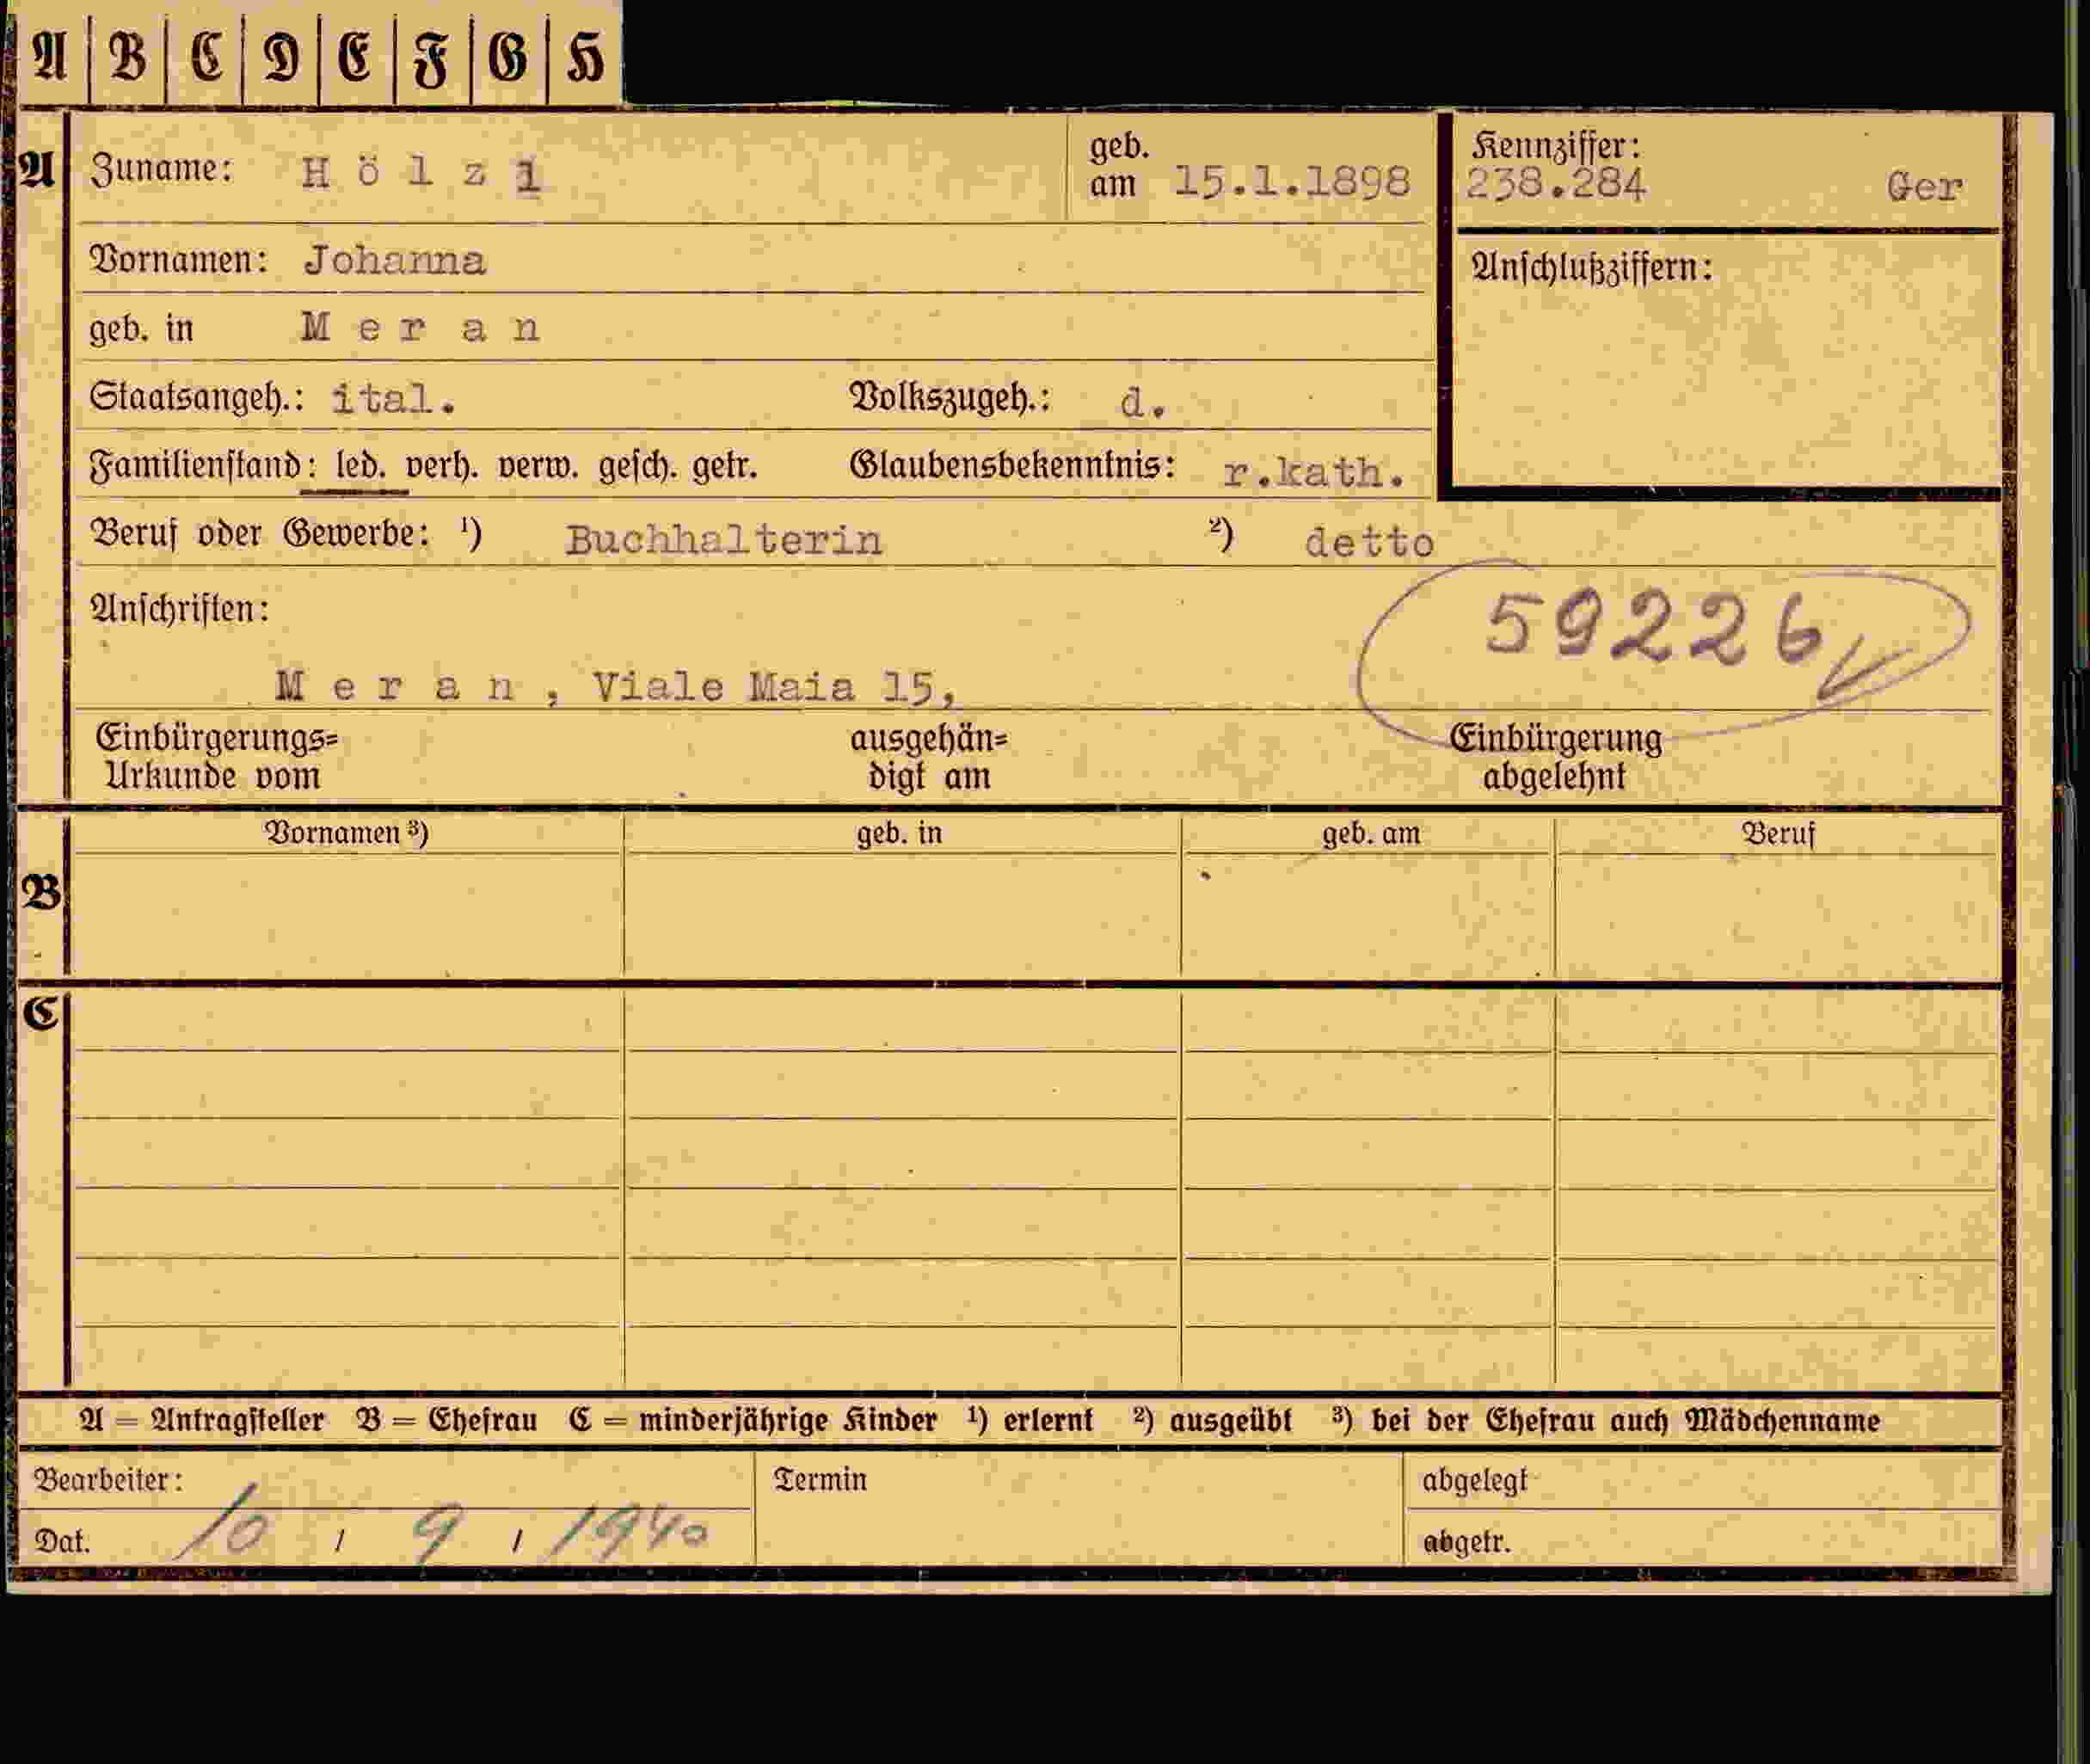 A B C D E F G H
A Zuname: H ö l z i geb. am 15.1.1898 Kennziffer: 238.284 Ger
Vornamen: Johanna Anschlußziffern:
geb. in M e r a n
Staatsangeh.: ital. Volkszugeh.: d.
Familienstand: led. verh. verw. gesch. getr. Glaubensbekenntnis: r.kath.
Beruf oder Gewerbe: ¹) Buchhalterin ²) detto
Anschriften: 59226
M e r a n , Viale Maia 15,
Einbürgerungs= ausgehän= Einbürgerung
Urkunde vom digt am abgelehnt
Vornamen ³) geb. in geb. am Beruf
B
C
A = Antragsteller B = Ehefrau C = minderjährige Kinder ¹) erlernt ²) ausgeübt ³) bei der Ehefrau auch Mädchenname
Bearbeiter: Termin abgelegt
Dat. 10 / 9 / 1940 abgetr.